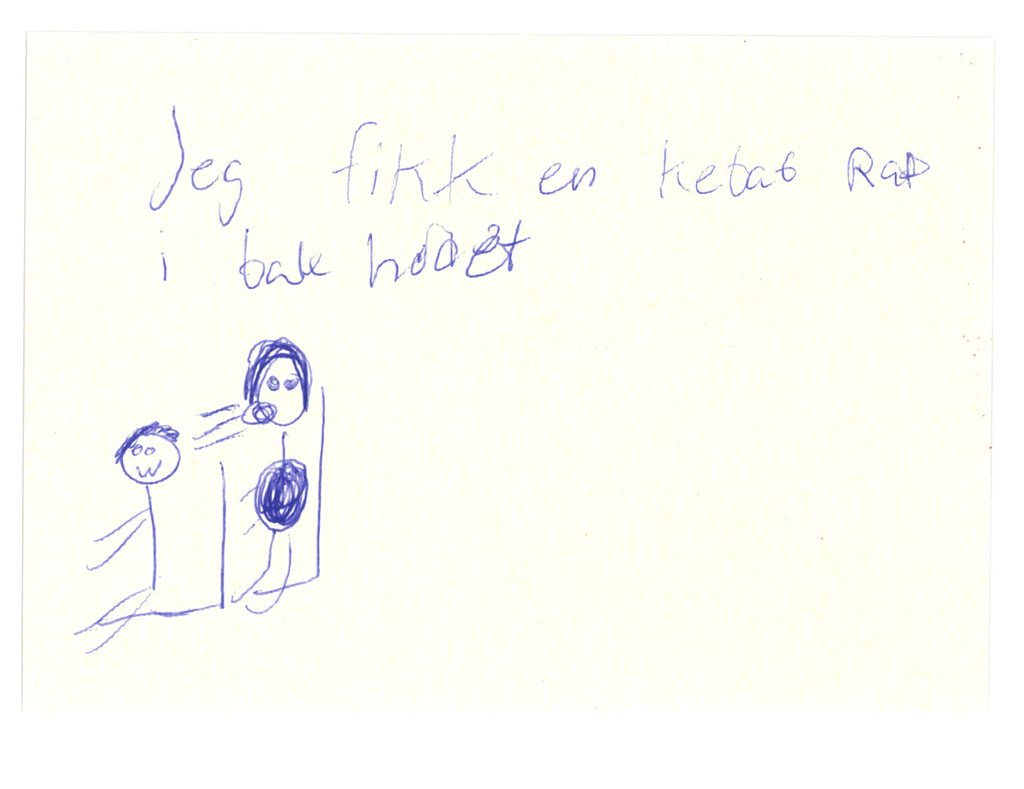 Jeg fikk en ketat Rap
i bak hodet